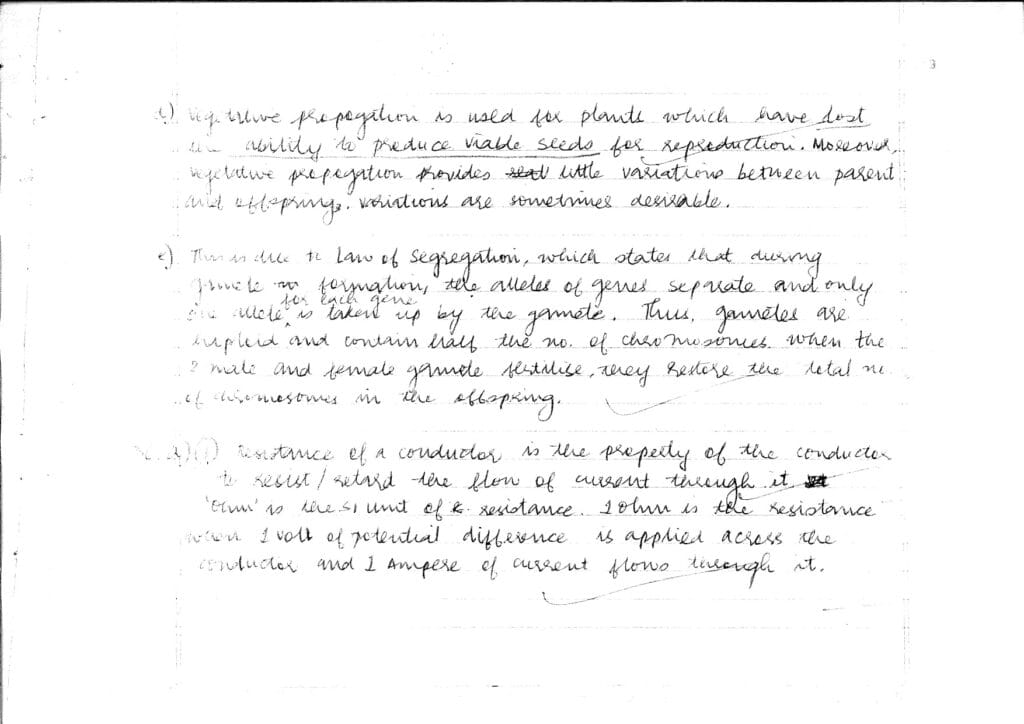 i) vegetative propagation is used for plants which have lost
the ability to produce viable seeds for reproduction. Moreover,
vegetative propagation provides little variations between parent
and offspring. variations are sometimes desirable.
e) This is due to Law of Segregation, which states that during
gamete formation, the alleles of genes separate and only
one allele for each gene is taken up by the gamete. Thus, gametes are
haploid and contain half the no. of chromosomes. when the
male and female gamete fertilise, they restore the total no.
of chromosomes in the offspring.
(i) resistance of a conductor is the property of the conductor
to resist/retard the flow of current through it
'ohm' is the SI unit of resistance. 1 ohm is the resistance
when 1 volt of potential difference is applied across the
conductor and 1 Ampere of current flows through it.